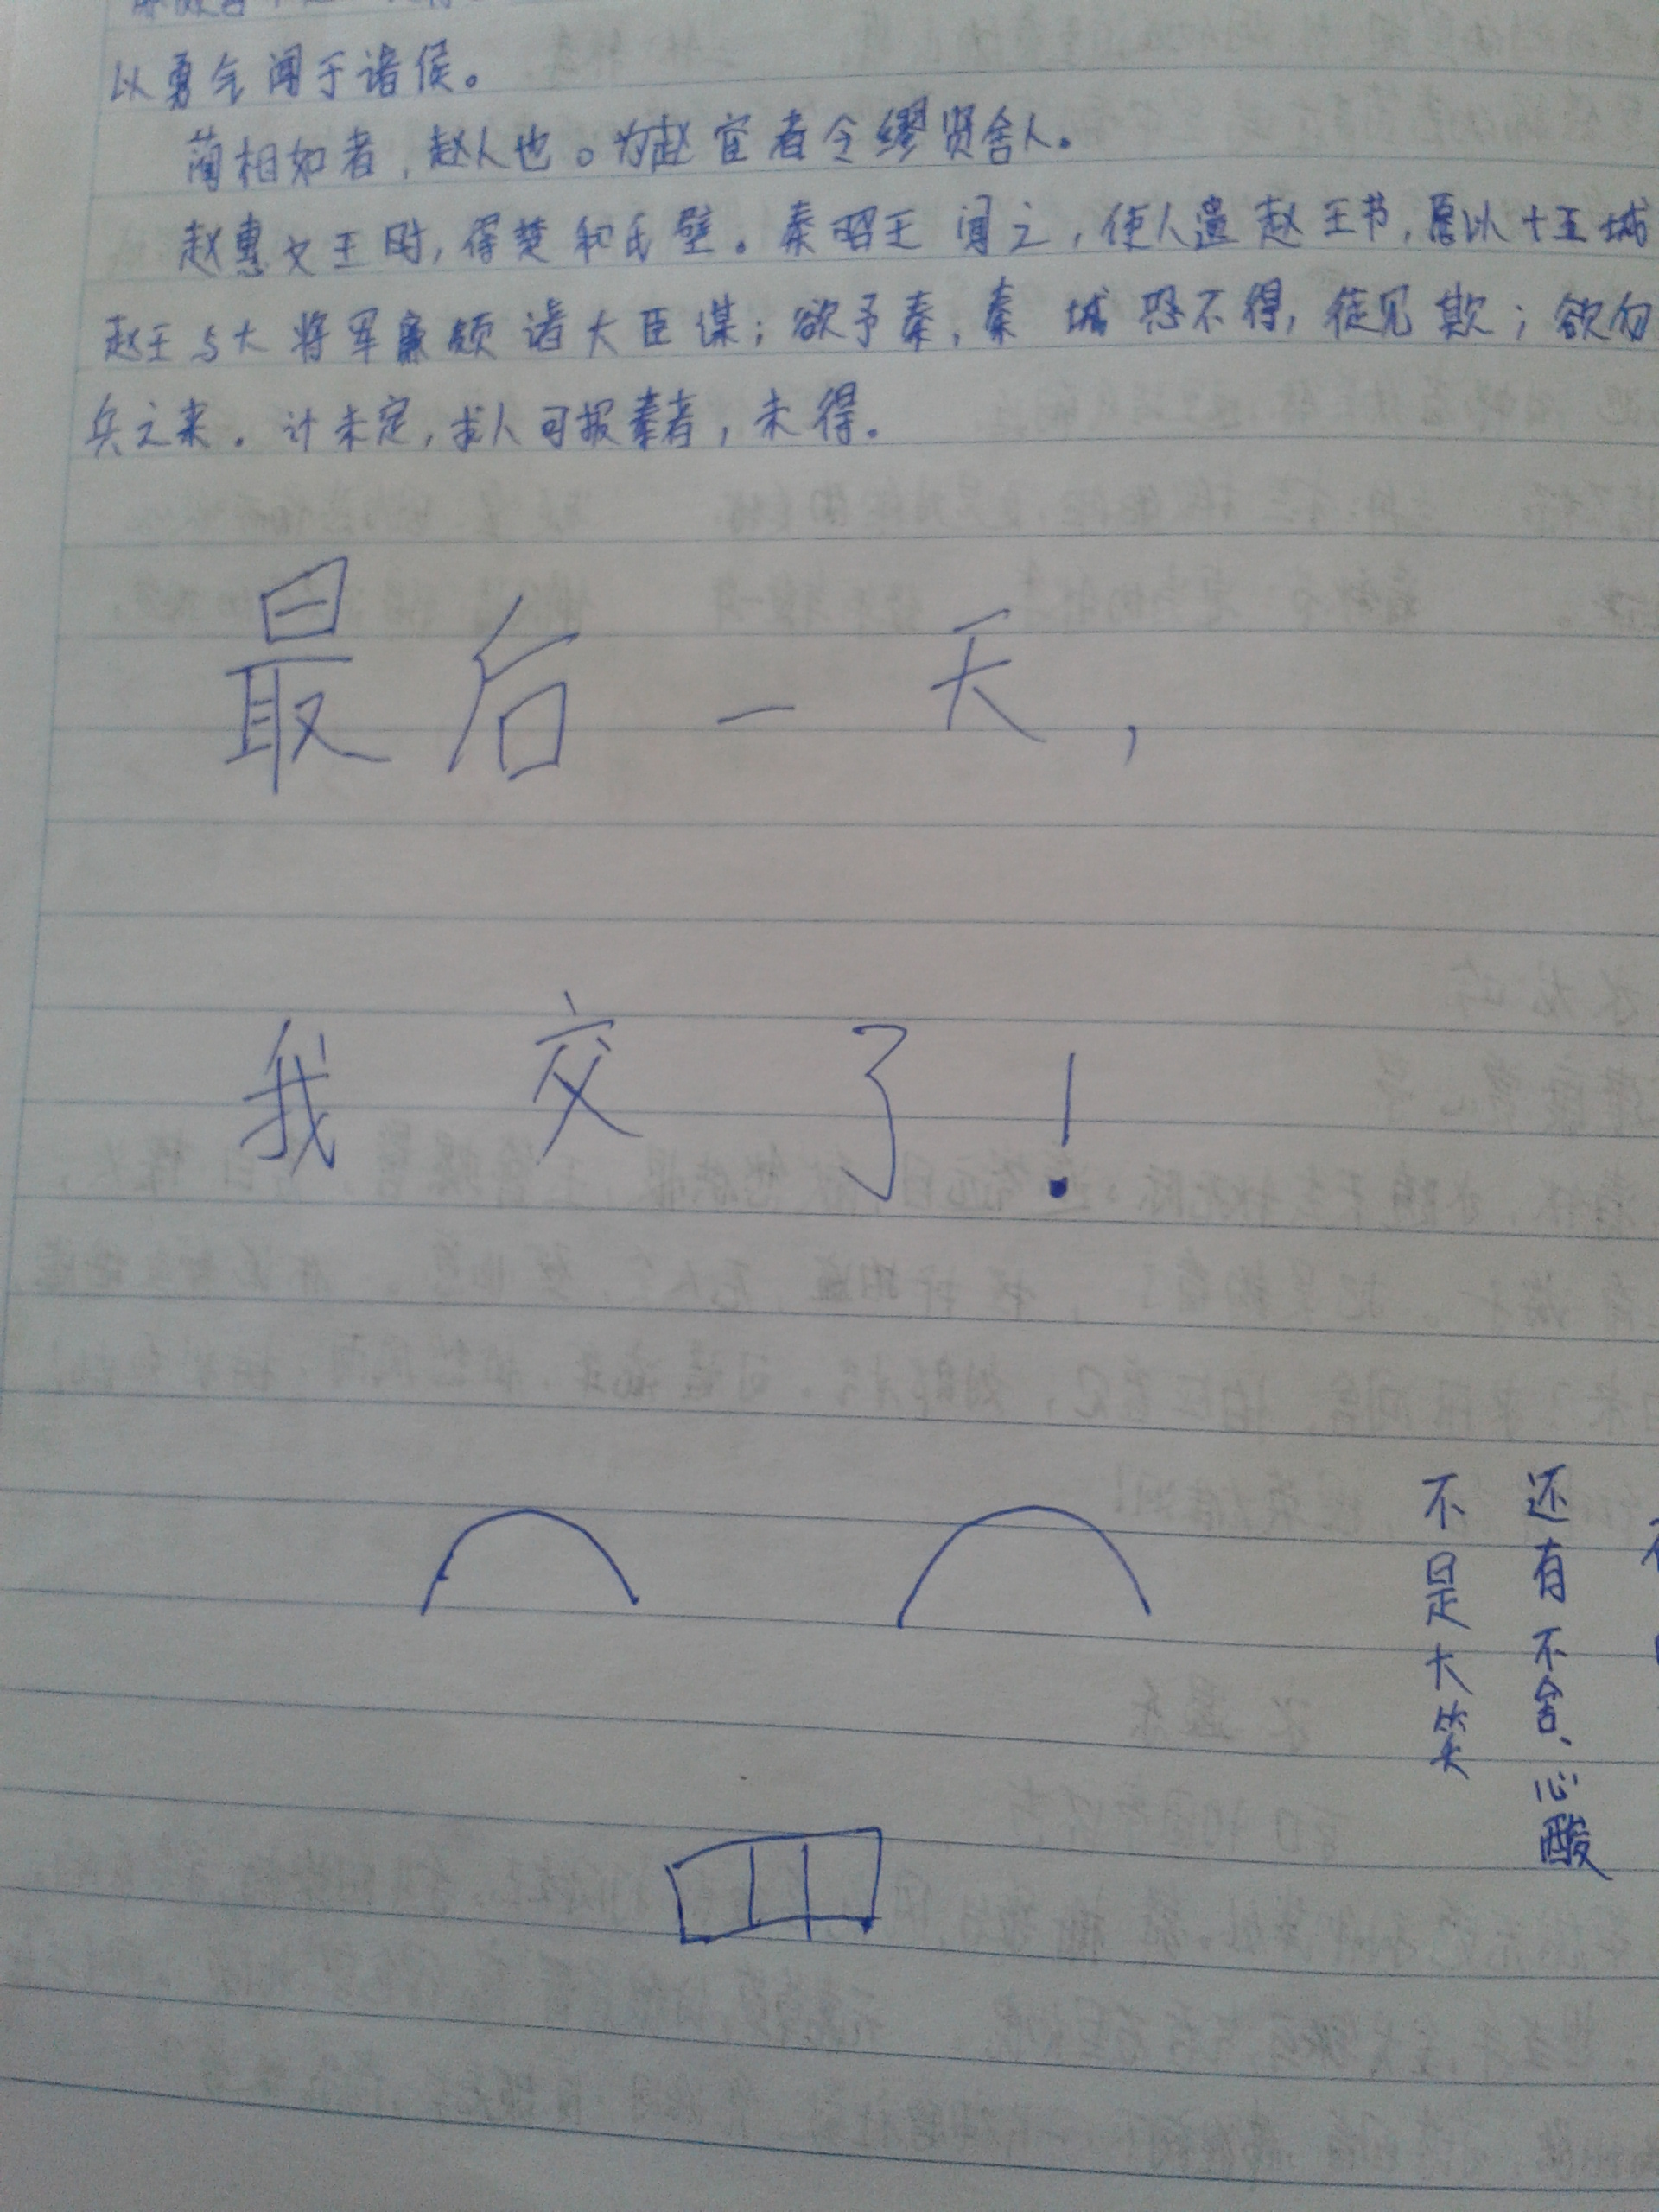 以勇气闻于诸侯。
蔺相如者，赵人也。为赵宦者令缪贤舍人。
赵惠文王时，得楚和氏璧。秦昭王闻之，使人遗赵王书，愿以十五城
赵王与大将军廉颇诸大臣谋；欲予秦，秦城恐不得，徒见欺；欲勿
兵之来。计未定，求人可报秦者，未得。
最后一天，
我交了！
还有不舍、心酸
不是大笑